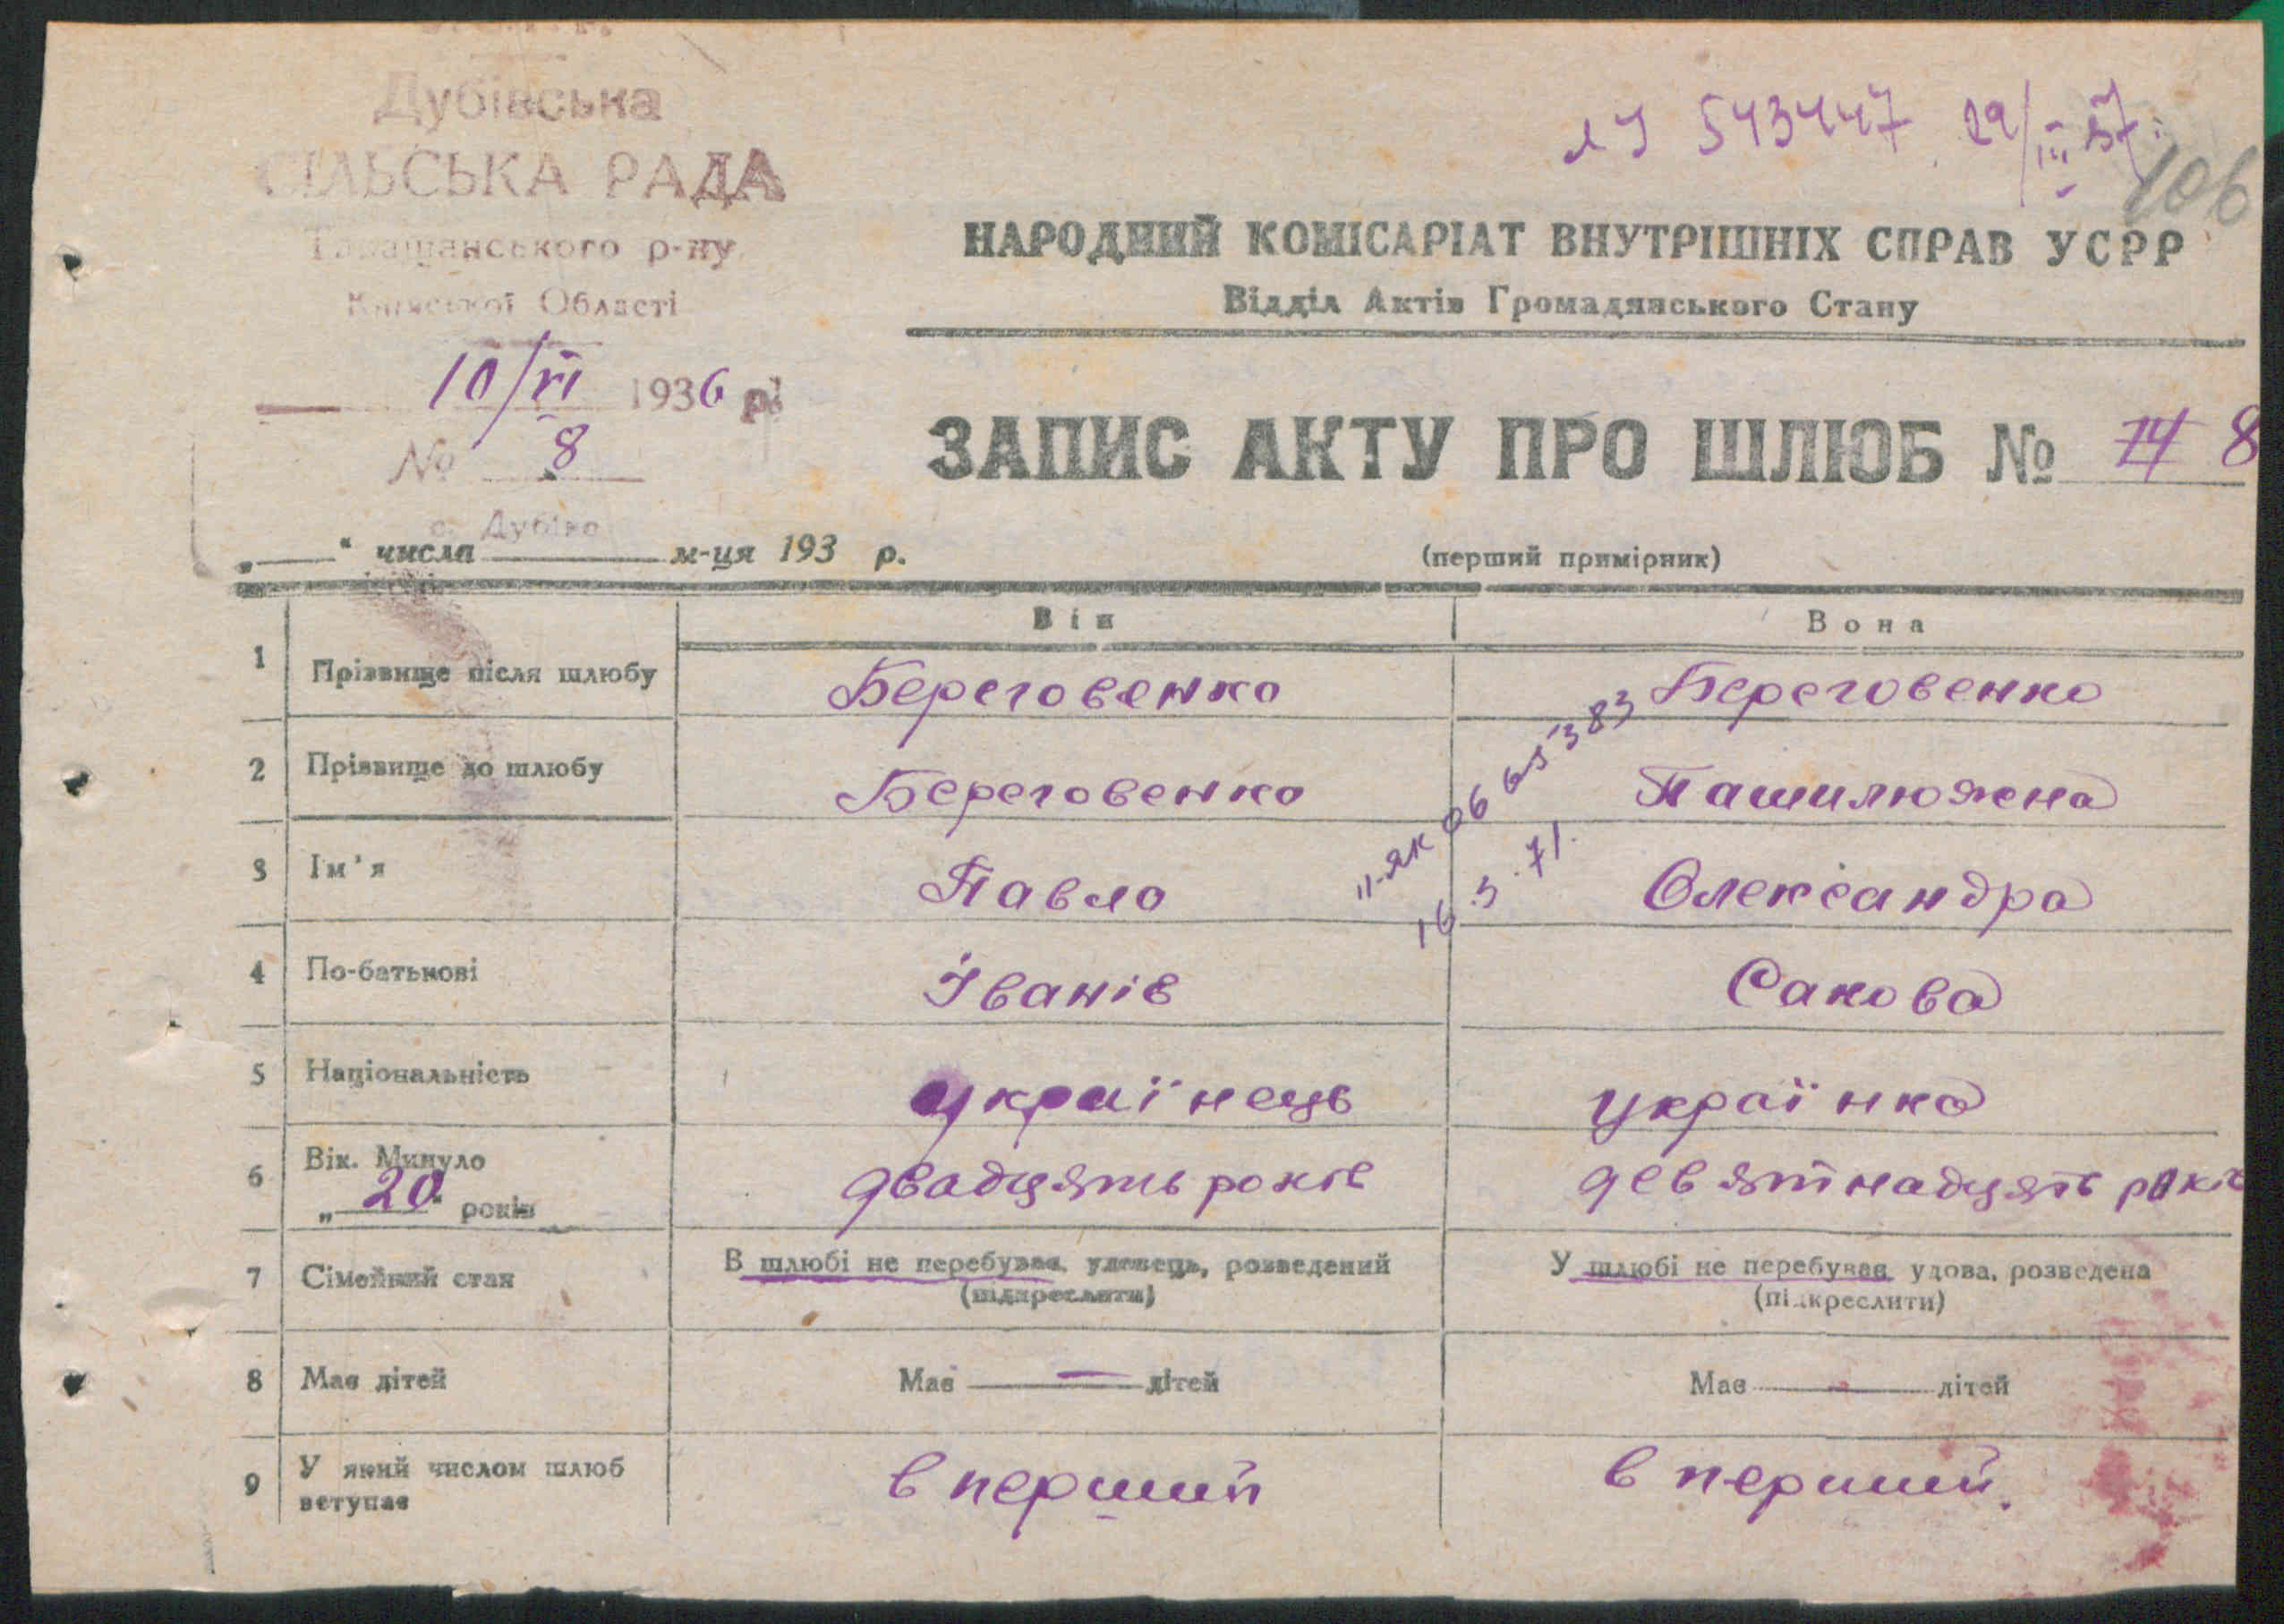 Дубівська
СІЛЬСЬКА РАДА
Таращанського р-ну
Київської Області
10/VI 1936 р.
№ 8
с. Дубівка
543447 29/III 57
106
НАРОДНИЙ КОМІСАРІАТ ВНУТРІШНІХ СПРАВ УСРР
Відділ Актів Громадянського Стану
ЗАПИС АКТУ ПРО ШЛЮБ № 14 8
„ “ числа м-ця 193 р.
(перший примірник)
Він Вона
1 Прізвище після шлюбу Береговенко Береговенко
2 Прізвище до шлюбу Береговенко Пашилюжена
3 Ім'я Павло Олександра
4 По-батькові Іванів Сакова
5 Національність українець українка
6 Вік. Минуло „20“ років двадцять років девятнадцять років
7 Сімейний стан В шлюбі не перебував, удовець, розведений (підкреслити) У шлюбі не перебувая удова, розведена (підкреслити)
8 Має дітей Має — дітей Має — дітей
9 У який числом шлюб вступає в перший в перший.
ІІ-ЯК 06 65 383
16.3.71.